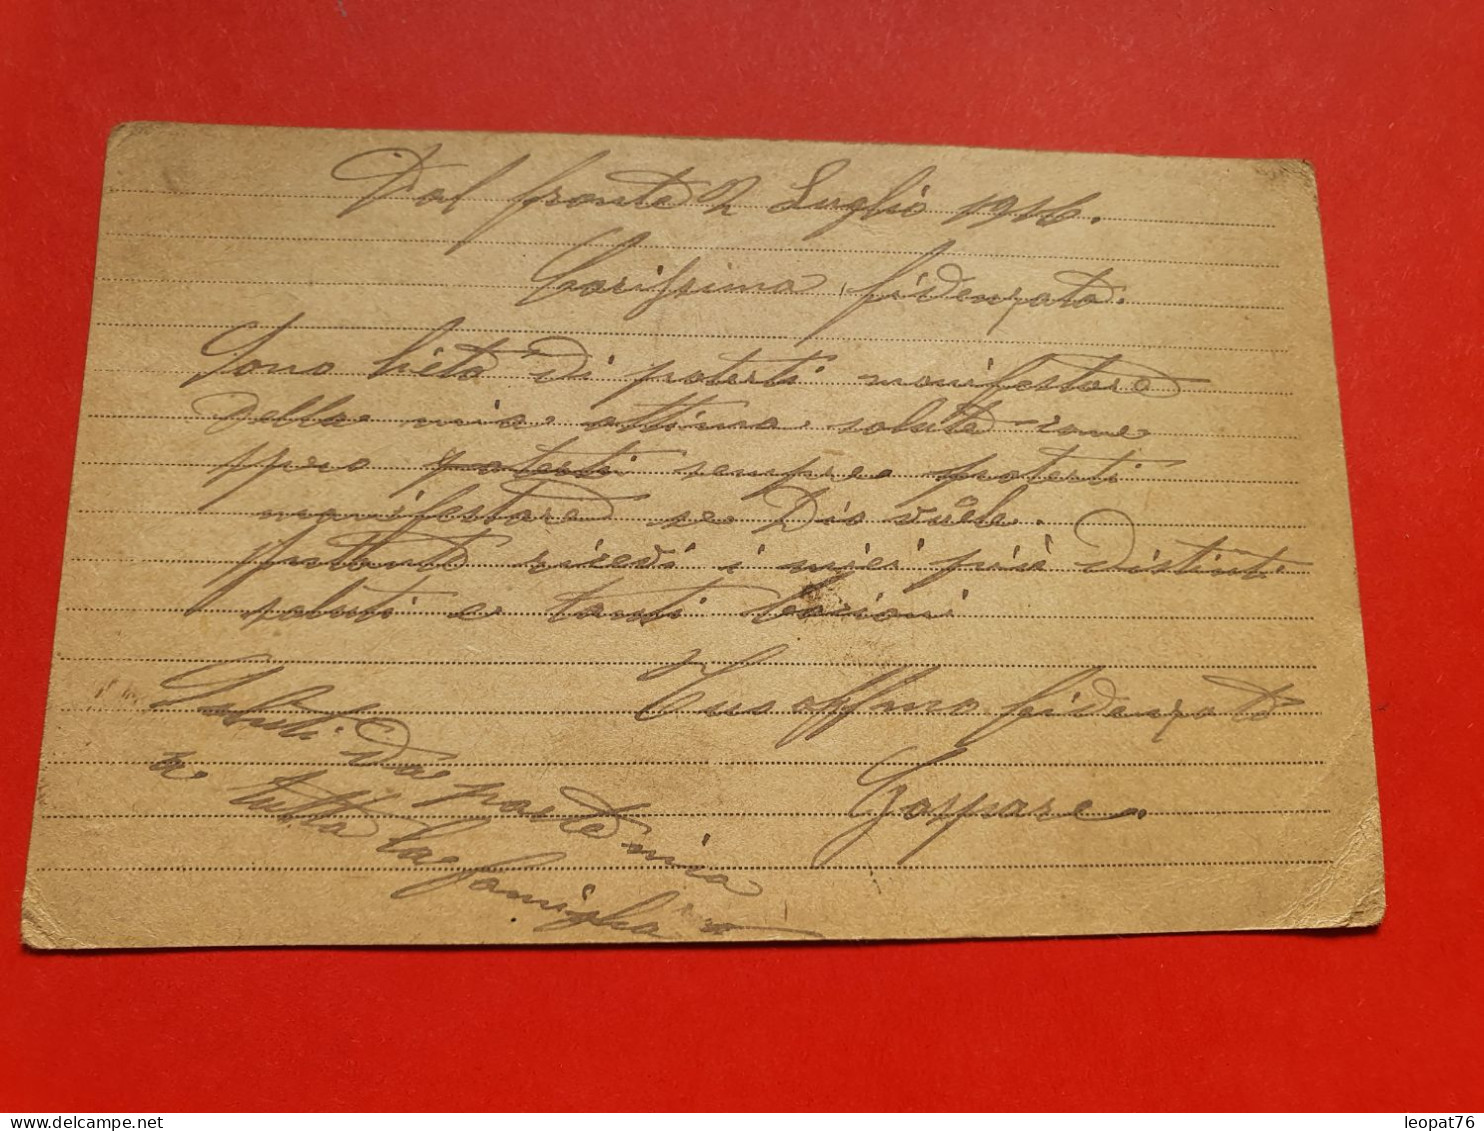 Dal fronte 2 Luglio 1916.
Carissima fidenzata.
Sono lieto di poterti manifestare
della mia ottima salute come
spero poterti sempre poterti
manifestare se Dio vuole.
pertanto ricevi i miei più distinti
saluti e tanti bacioni
Tuo affmo fidenzato
Gaspare.
Saluti da parte mia
a tutta la famiglia
leopat76